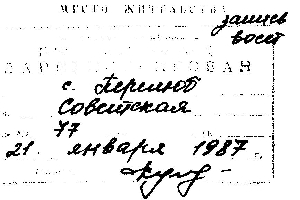 МЕСТО ЖИТЕЛЬСТВА
запись
вост
с. Перелюб
Советская
77
21 января 1987